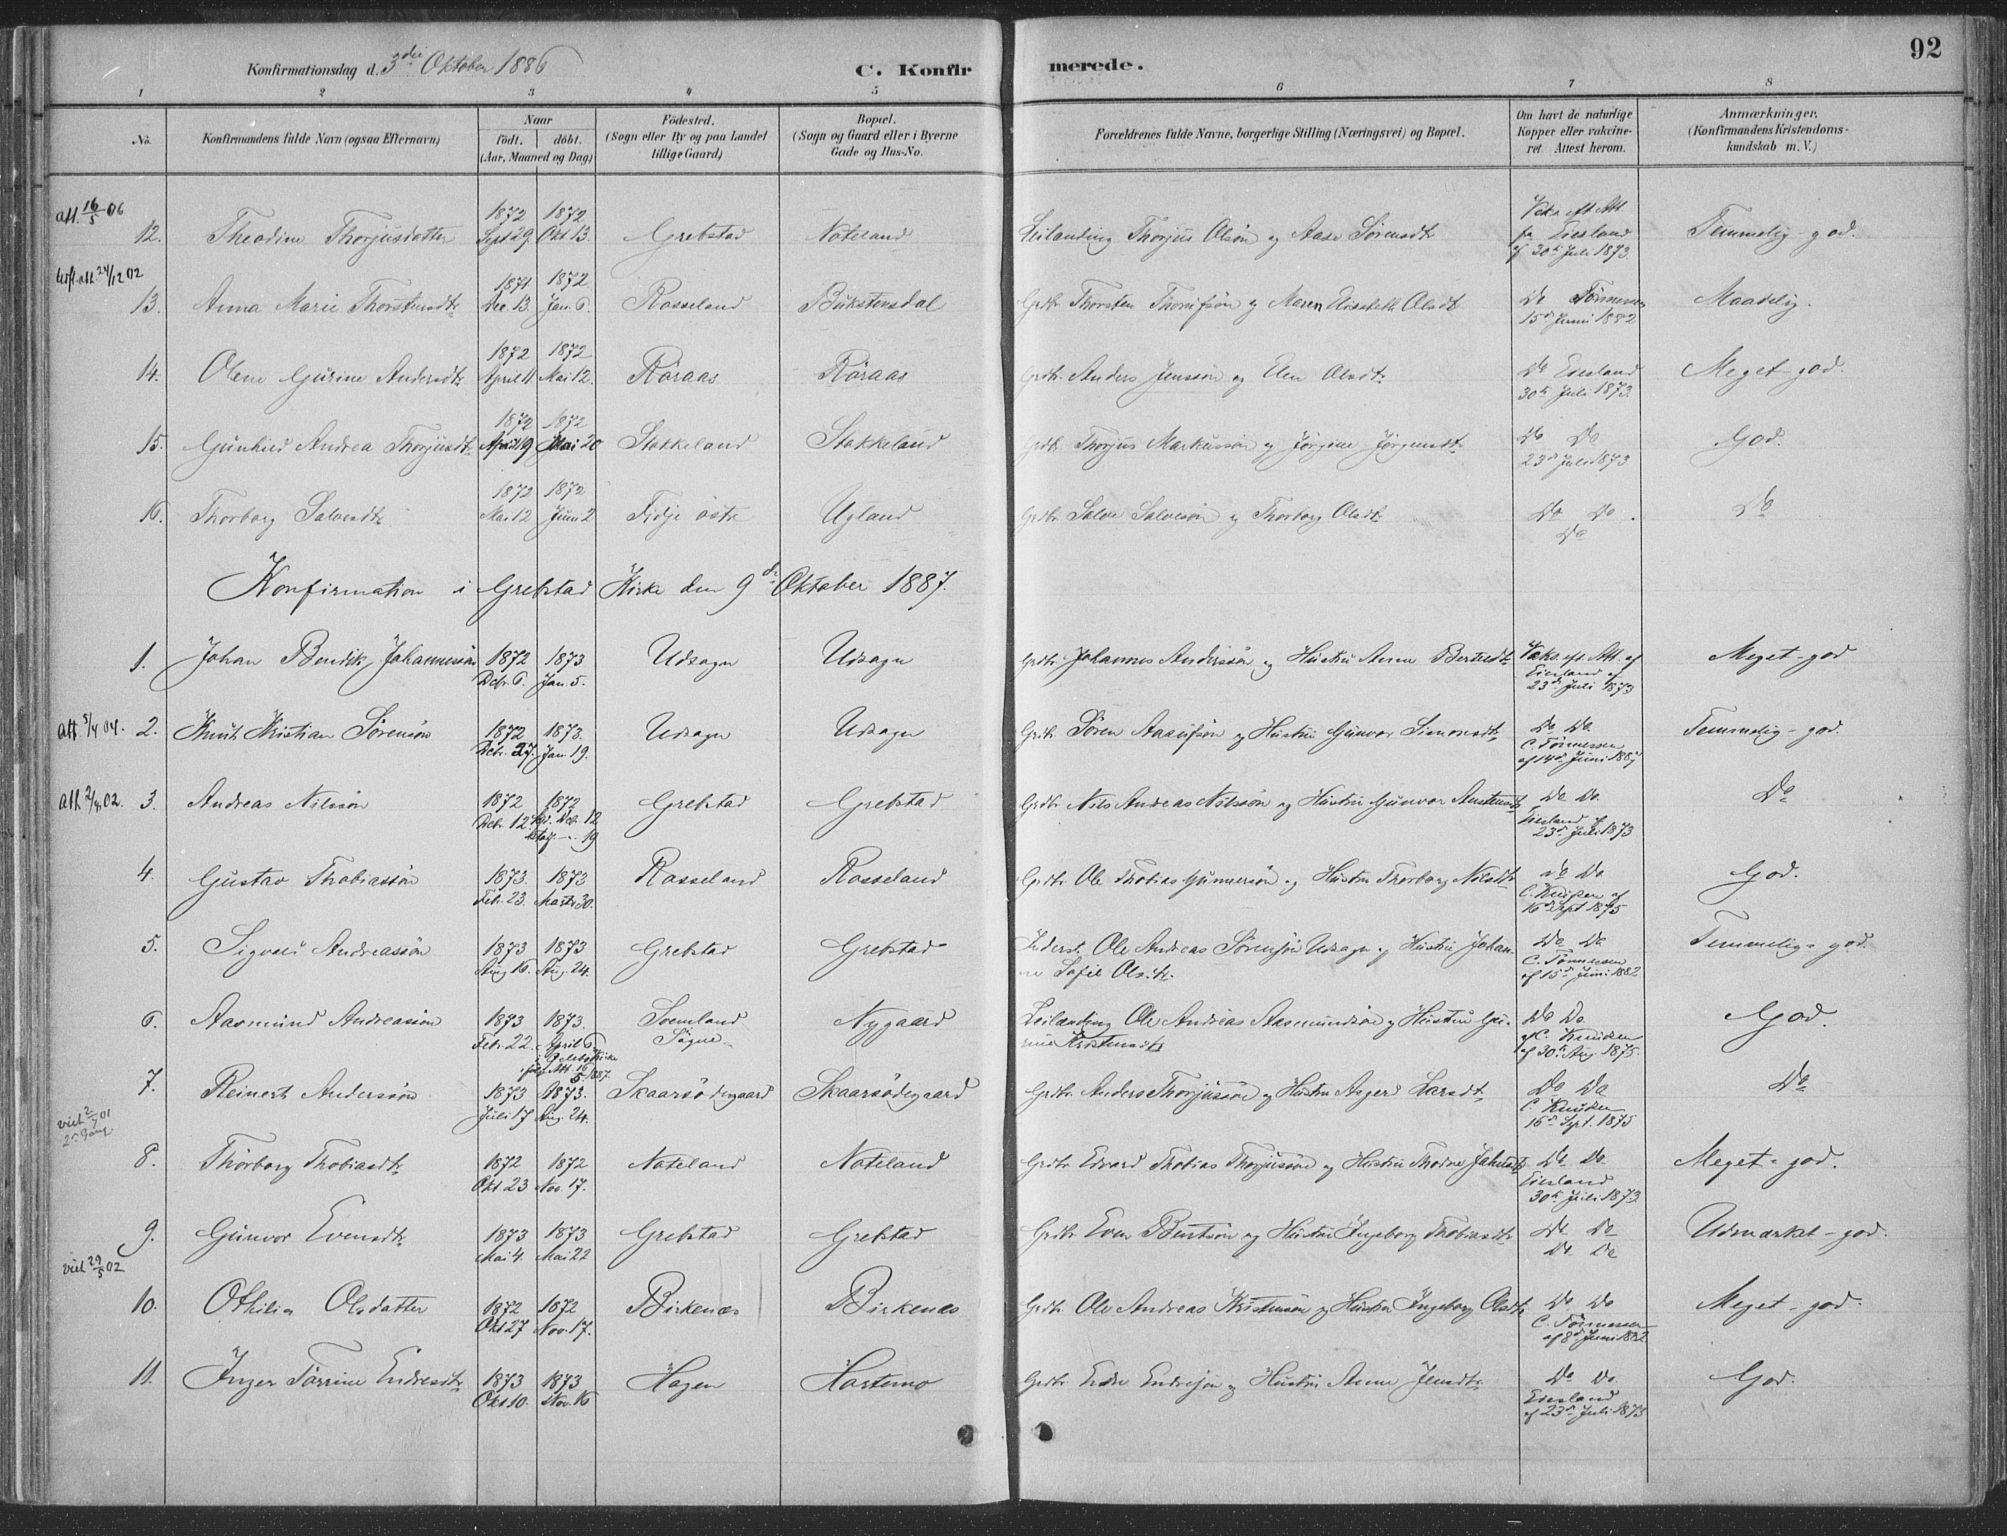 92
Konfirmationsdag d. 3die Oktober 1886
C. Konfir merede.
1 2 3 4 5 6 7 8
No.
Konfirmandens fulde Navn (ogsaa Efternavn)
Naar
født. døbt.
(Aar, Maaned og Dag)
Fødested.
(Sogn eller By og paa Landet
tillige Gaard)
Bopæl.
(Sogn og Gaard eller i Byerne
Gade og Hus-No.
Forældrenes fulde Navne, borgerlige Stilling (Næringsvei) og Bopæl.
Om havt de naturlige
Kopper eller vakcine-
ret Attest herom.
Anmærkninger.
(Konfirmandens Kristendoms-
kundskab m. V.)
att. 16/5 06
12. Theodine Thorjusdatter 1872 Sept 29. 1872 Okt 13. Grebstad Noteland Leilending Thorjus Olsøn og Aase Sørensdt Vakc. eft. Att. fr Eiesland af 30te Juli 1873. Temmelig-god.
att. 24/12 02
13. Anna Marie Thorstensdtr 1871 Dec. 13. 1872 Jan. 6. Rosseland Bukstensdal Grdbr. Thorsten og Maren Elisabeth Olsdt Do Tønnessen 15de Juni 1882 Maadelig.
14. Olene Gurine Andersdtr 1872 April 11 1872 Mai 12. Röraas Röraas Grdbr. Anders Jenssøn og Elen Olsdtr Do Eiesland 30te Juli 1873. Meget-god.
15. Gunhild Andrea Thorjusdtr 1872 April 19 1872 Mai 20 Stokkeland Stokkeland Grdbr. Thorjus Markussøn og Jørgine Jørgensdtr Do Do 23de Juli 1873 God.
16. Thorborg Salvesdtr 1872 Mai 12 1872 Juni 2 Fidje østre Ugland Grdbr. Salve Salvesøn og Thorborg Olsdtr Do Do Do Do
Konfirmation i Grebstad Kirke den 9de Oktober 1887.
1. Johan Bendik Johannessøn 1872 Dcbr. 6. 1873 Jan. 5. Udsogn Udsogn Grdbr. Johannes Anderssøn og Hustru Anne Berteldtr Vakc. eft. Att. af Eiesland af 23de Juli 1873 Meget-god
att. 5/4 04. 2. Knut Kristian Sørensøn 1872 Dcbr. 27. 1873. Jan. 19. Udsogn Udsogn Grdbr. Søren og Hustru Gunvor Simonsdtr Do Do. C. Tønnessen af 14de Juni 1887 Temmelig-god.
3. Andreas Nilssøn 1872 Dcbr. 12. 1872 Dcbr. 12 19 Grebstad Grebstad Grdbr Nils Andreas Nilssøn og Hustru Gunvor Do Do. Eiesland af 23de Juli 1873 Do
4. Gustav Thobiassøn 1873. Febr. 23. 1873 Marts 30. Rosseland Rosseland Grdbr. Ole Thobias Gunnersøn og Hustru Thorborg Nilsdtr Do Do C. Knudsen af 16de Sept 1875 God.
5. Sigvald Andreassøn 1873 Aug 16. 1873 Aug. 24. Grebstad Grebstad Inderst Ole Andreas Sørensøn Udsogn og Hustru Johan-
ne Sofie Olsdtr. Do Do C. Tønnessen af 15de Juni 1882 Temmelig-god.
6. Aasmund Andreassøn 1873 Febr. 22. 1873. April 6 Søgne Nygaard Leilending Ole Andreas Aasmundsøn og Hustru Gu-
rine Kristensdtr Do Do af C. Knudsen af 30te Aug. 1875. God.
7. Reinert Anderssøn 1873 Juli 17 1873. Aug. 24. Skaarsødegaard Skaarsødegaard Grdbr. Anders Thorjussøn og Hustru Asgerd Larsdtr Do Do C. Knudsen 16de Sept. 1875 Do
viet 2/7 01
2den Gang.
8. Thorborg Thobiasdtr 1872 Okt 23 1872 Nov. 17. Noteland Noteland Grdbr Edvard Thobias Thorjussøn og Hustru Do Do. Eiesland 30te Juli 1873. Meget-god.
9. Gunvor Evensdtr 1873 Mai 4. 1873 Mai 22 Grebstad Grebstad Grdbr Even Bentsøn og Hustru Ingeborg Thobiasdtr Do Do Do Do Udmærket-god.
viet 29/5 02
10. Othilia Olsdatter 1872 Okt 27 1872 Nov. 17. Birkenes Birkenes Grdbr. Ole Andreas Kristensøn og Hustru Ingeborg Olsdtr Do Do C. Tønnessen af 8de Juni 1882. Meget-god.
11. Inger Torrine Endresdtr 1873 Okt 10. 1873 Nov. 16 Hagen Hortemo Grdbr. Endre Endresøn og Hustru Anne Jensdtr Do Do. Eiesland af 23de Juli 1875 God.